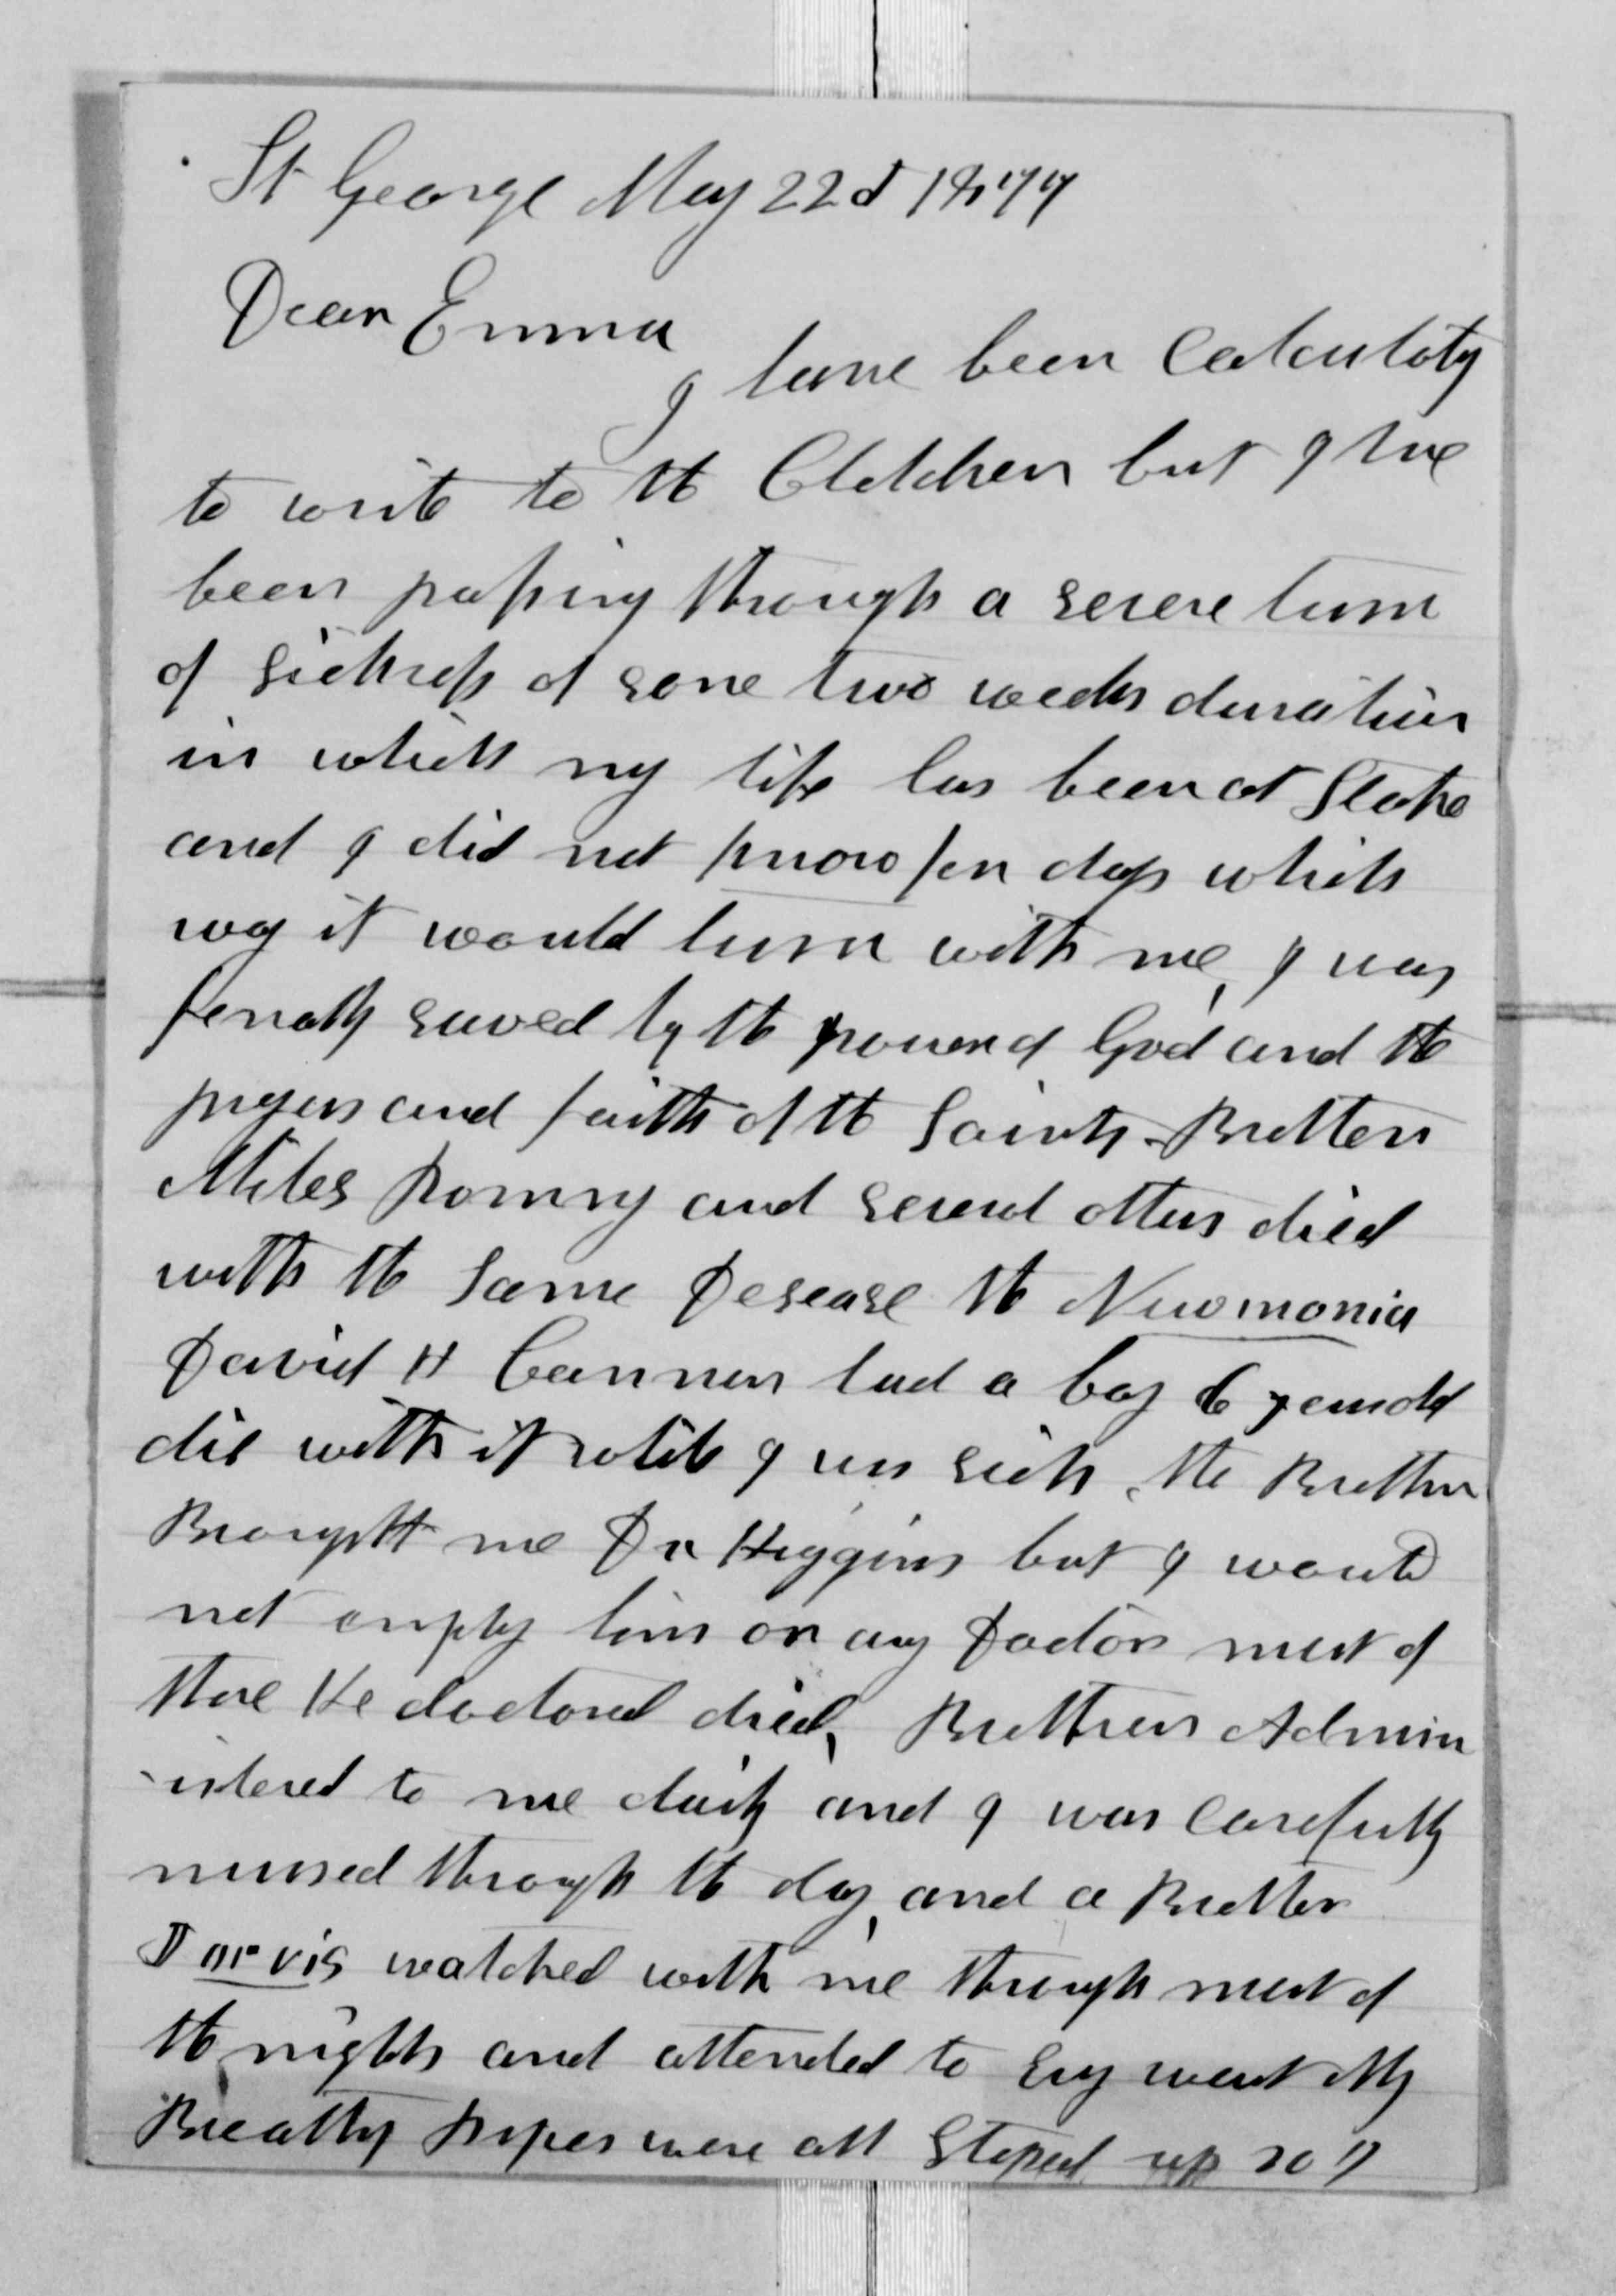 St George May 22d 1877
Dear Emma
I have been Calculatig
to write to the Children but I have
been passing through a severe turn
of Sickness of some two weeks duration
in which my life has been at Stake
and I did not know for days which
way it would turn with me, I was
finally saved by the power of God and the
prayers and faith of the Saints. Brother
Miles Romny and several others died
with the Same Desease the Newmonia
David H Cannon had a boy 6 years old
die with it while I was sick, the Brethren
Brought me Dr Higgins but I would
not employ him or any Doctor most of
those He doctored died, Brethren Admin
-istered to me daily and I was Carefully
nursed through the day, and a Brother
Jarvis watched with me through most of
the nights and attended to evry want My
Breathig Pipes were all Stoped up so I